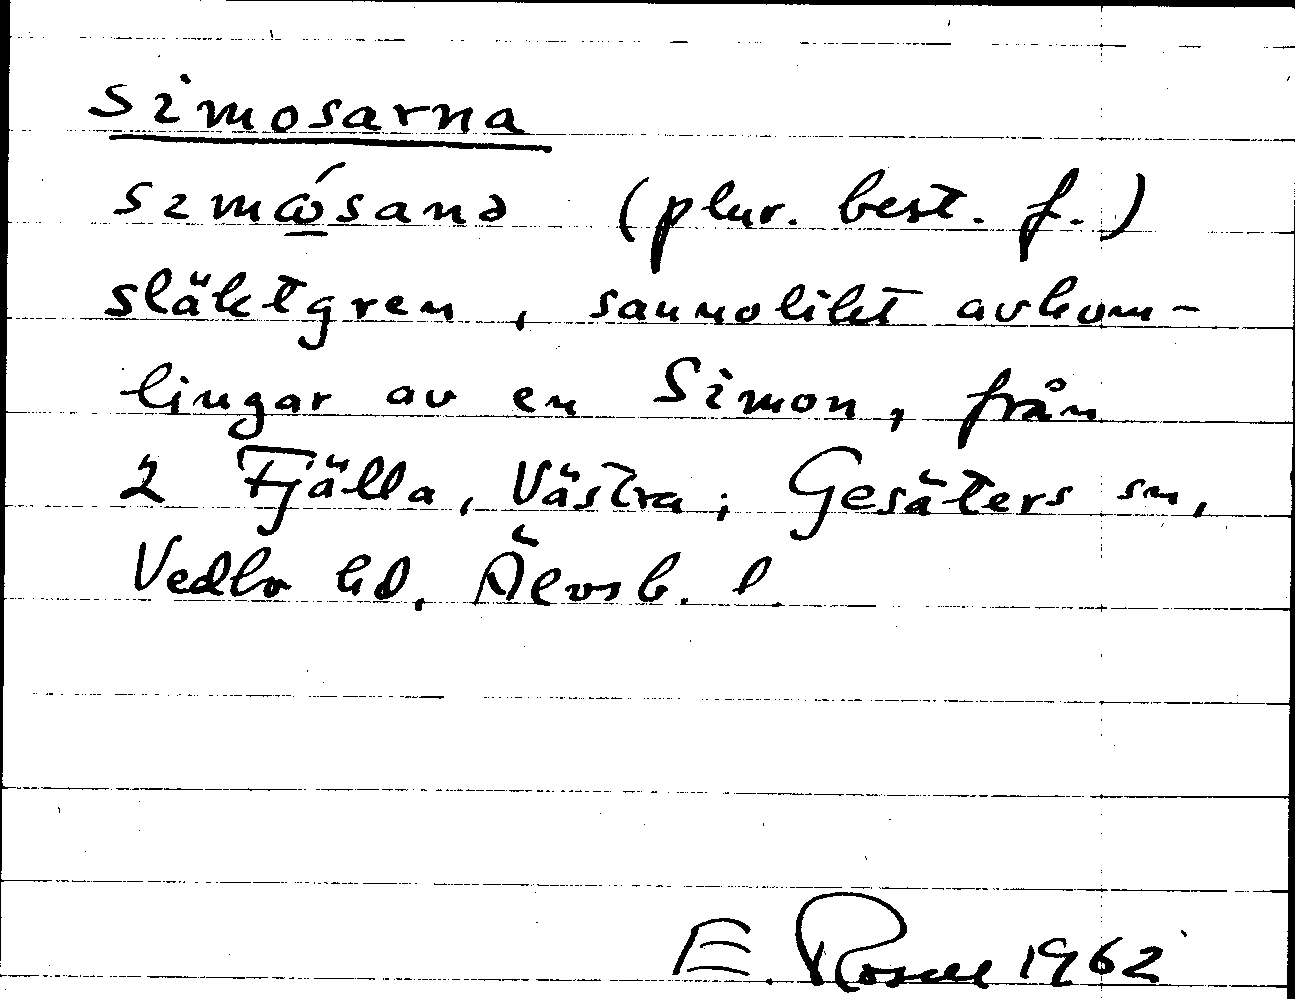 simosarna
sımώ̲sanə (plur. best. f.)
släktgren, sannolikt avkom-
lingar av en Simon, från
2 Fjälla, Västra; Gesäters sn,
Vedbo hd, Älvsb. l.
E. Rosell 1962